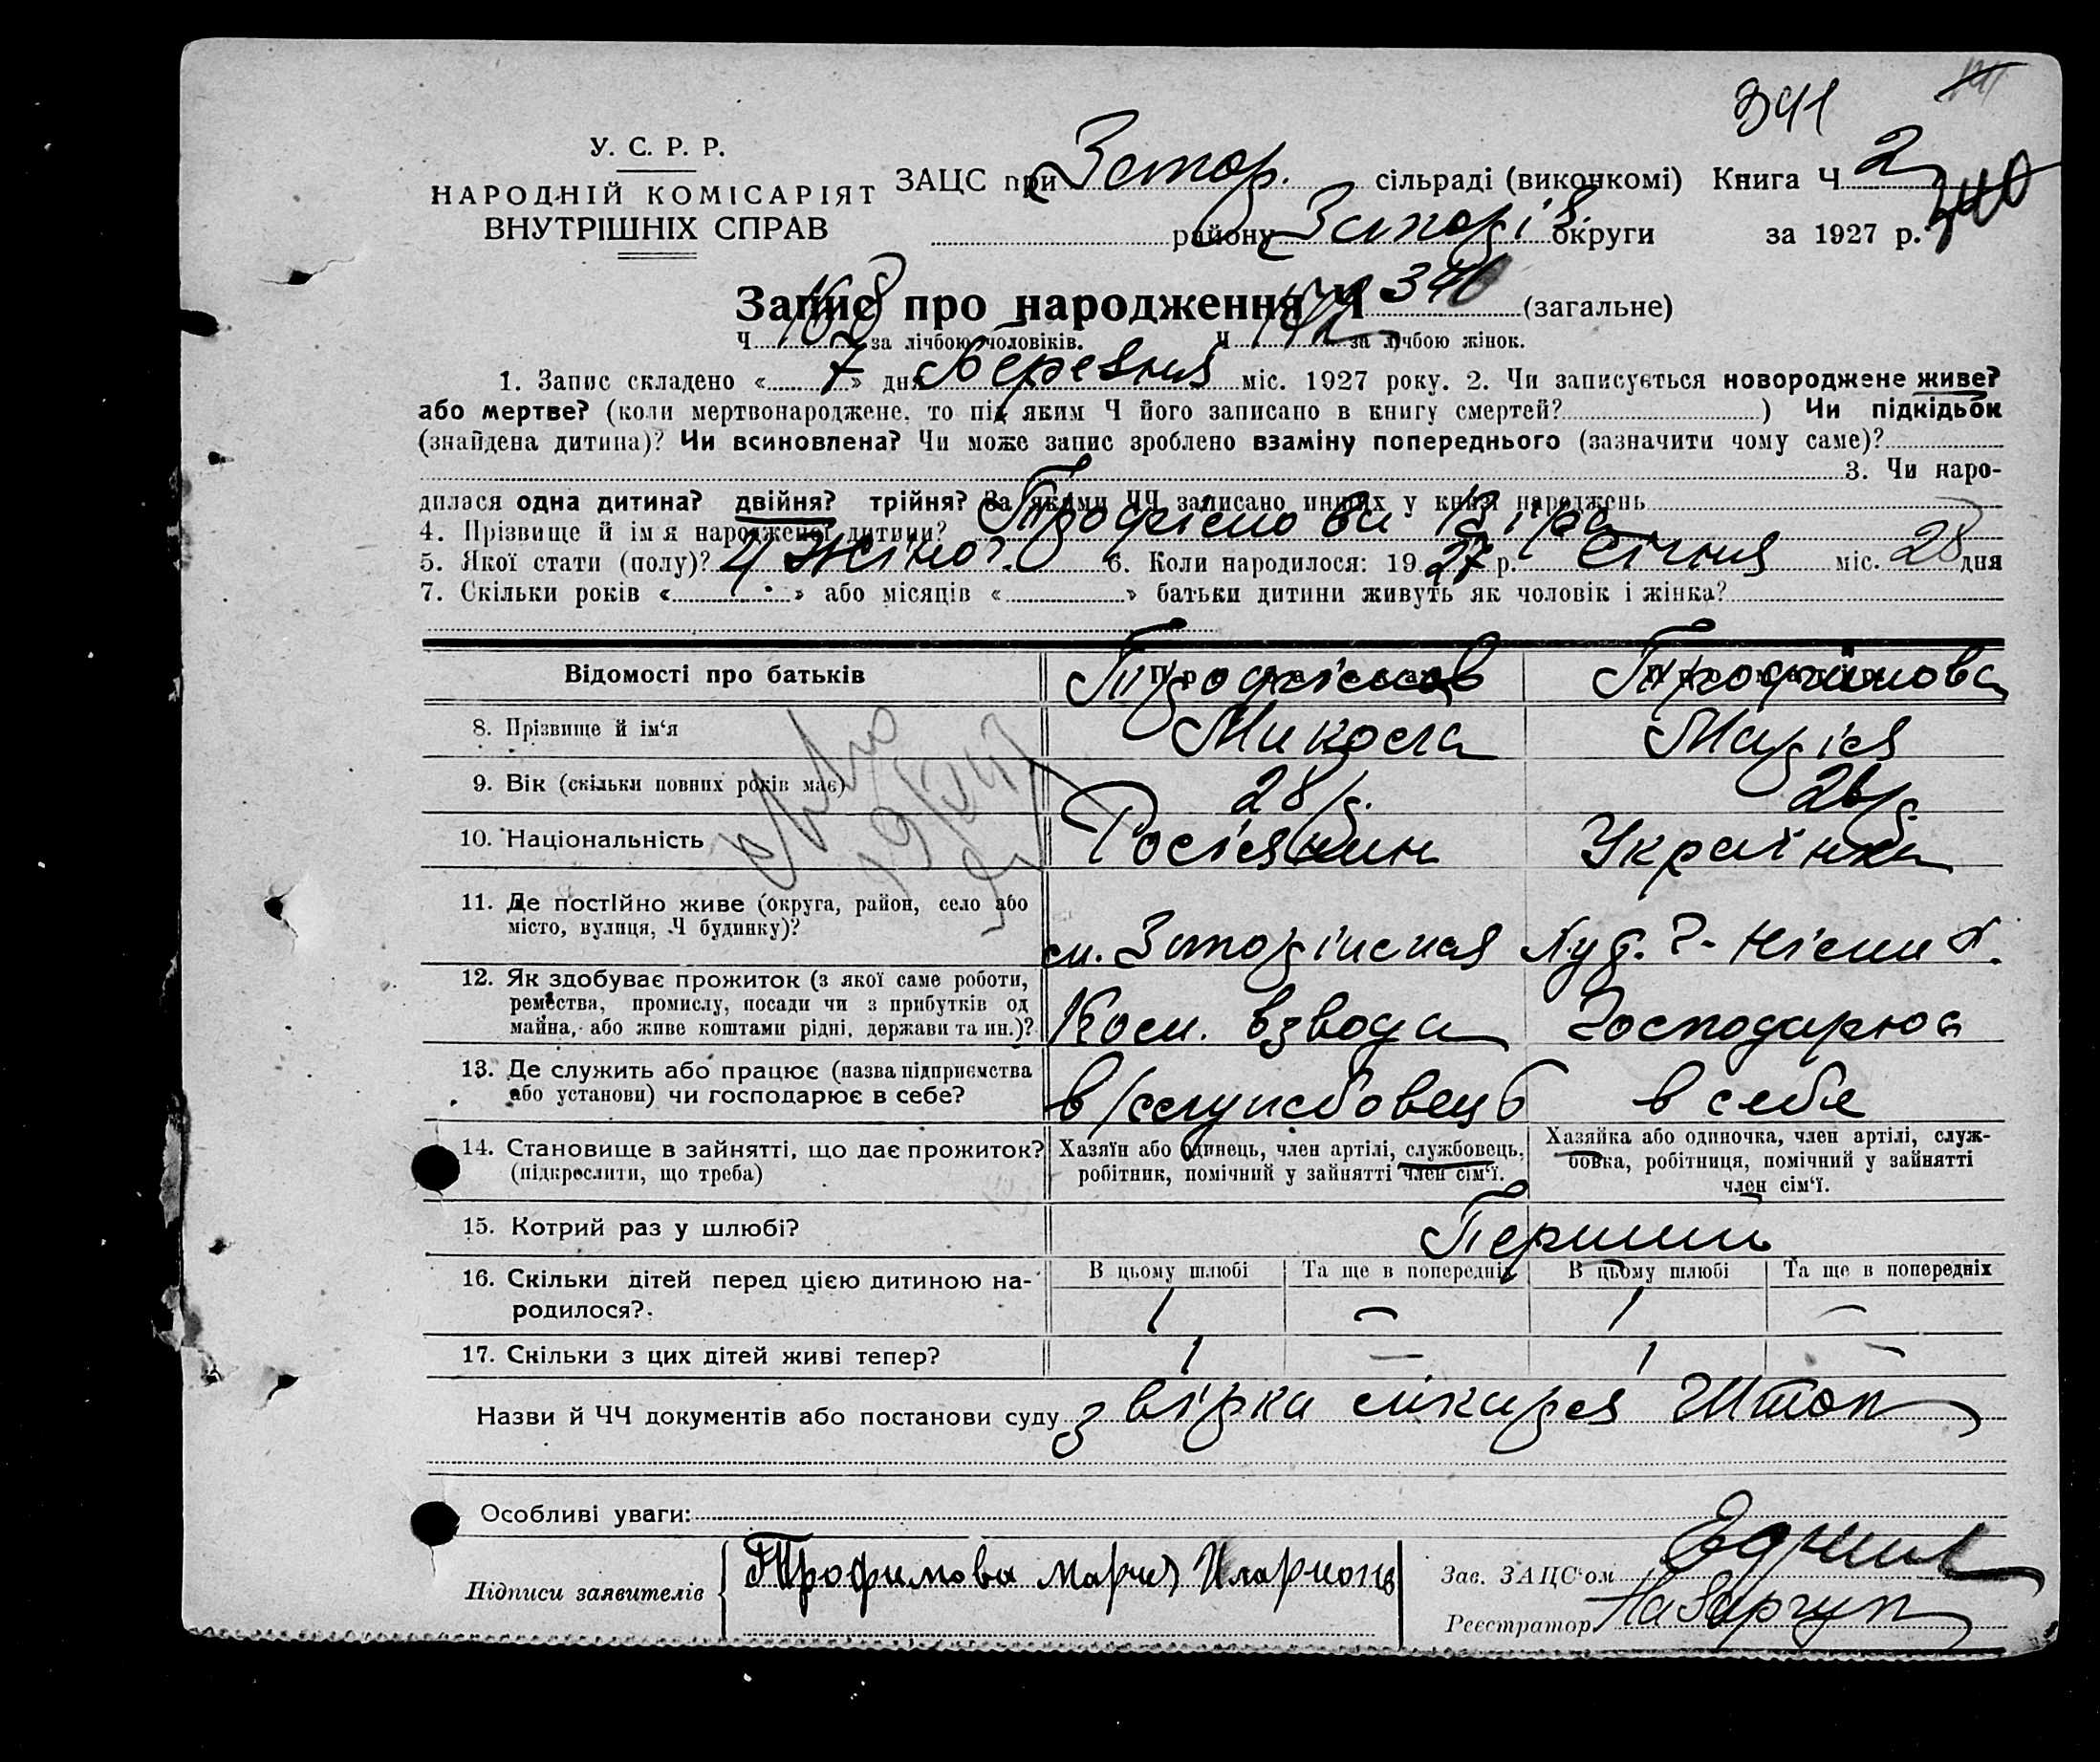 341
У. С. Р. Р.
НАРОДНІЙ КОМІСАРІЯТ
ВНУТРІШНІХ СПРАВ
ЗАЦС при Зтор. сільраді (виконкомі) Книга Ч 2
району округи за 1927 р. 340
Запис про народження Ч 340 (загальне)
Ч 168 за лічбою чоловіків. Ч 172 за лічбою жінок.
1. Запис складено « 7 » дня Березня міс. 1927 року. 2. Чи записується новороджене живе?
або мертве? (коли мертвонароджене, то під яким Ч його записано в книгу смертей? ) Чи підкідьок
(знайдена дитина)? Чи всиновлена? Чи може запис зроблено взаміну попереднього (зазначити чому саме)?
3. Чи наро-
дилася одна дитина? двійня? трійня? За якими ЧЧ записано инших у книзі народжень
4. Прізвище й ім'я народженої дитини? Трофімова Віра
5. Якої стати (полу)? Жіно 6. Коли народилося: 19 27 р. Січня міс. 28 дня
7. Скільки років « » або місяців « » батьки дитини живуть як чоловік і жінка?
Відомості про батьків
8. Прізвище й ім'я Трофімов Микола Трофімова Марія
9. Вік (скільки повних років має) 28 р. 26 р.
10. Національність Росіянин Українка
11. Де постійно живе (округа, район, село або
місто, вулиця, Ч будинку)?
12. Як здобуває прожиток (з якої саме роботи,
ремества, промислу, посади чи з прибутків од
майна, або живе коштами рідні, держави та ин.)? Ком. взвода Господарює
13. Де служить або працює (назва підприємства
або установи) чи господарює в себе? в/службовець в себе
14. Становище в зайнятті, що дає прожиток?
(підкреслити, що треба)
Хазяїн або одинець, член артілі, службовець,
робітник, помічний у зайнятті член сім'ї.
Хазяйка або одиночка, член артілі, служ-
бовка, робітниця, помічний у зайнятті
член сім'ї.
15. Котрий раз у шлюбі? Перший
16. Скільки дітей перед цією дитиною на-
родилося?
В цьому шлюбі Та ще в попередніх В цьому шлюбі Та ще в попередніх
1 — 1 —
17. Скільки з цих дітей живі тепер? 1 — 1 —
Назви й ЧЧ документів або постанови суду лікаря Штоп
Особливі уваги:
Підписи заявителів Трофимова Мария Иларионв
Зав. ЗАЦС'ом
Реєстратор